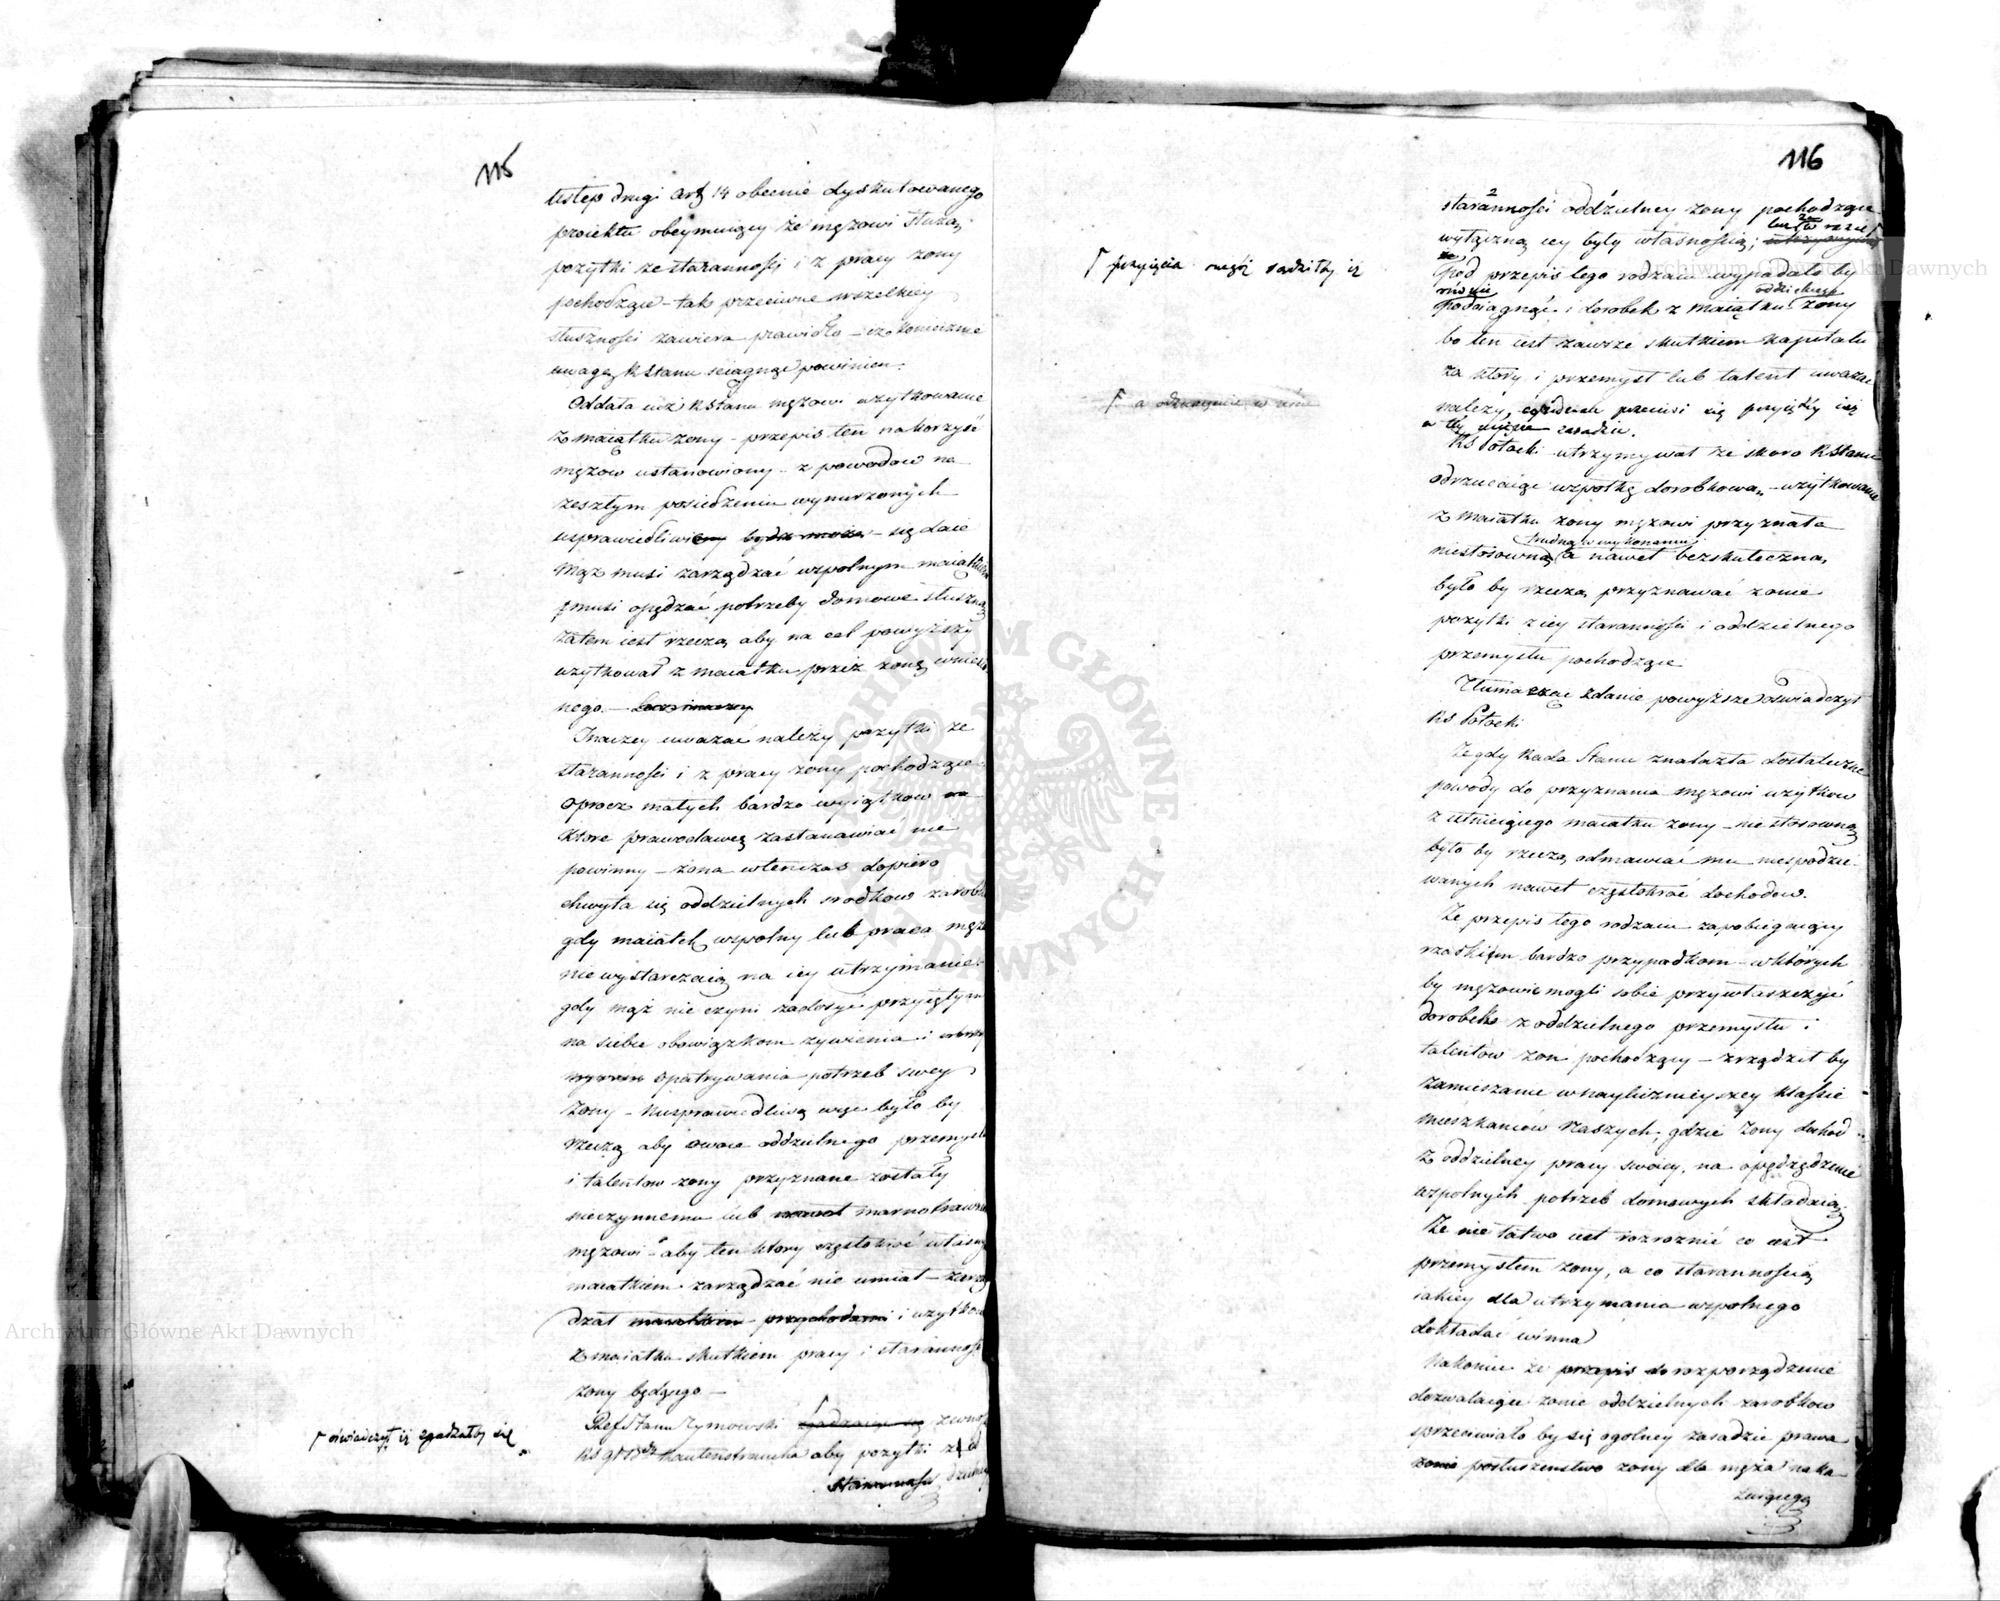 115
ustęp drugi Art 14 obecnie dyskutowanego
proiektu obeymuiący że mężowi służą
pożytki ze staranności i z pracy żony
pochodzące – tak przeciwne wszelkiey
słuszności zawiera prawidło – iż koniecznie
uwagę R Stanu sciągnąć powinien.
Oddała iuż R Stanu mężowi użytkowanie
z maiątku żony – przepis ten na korzyść
mężow ustanowiony – z powodow na
zeszłym posiedzeniu wynurzonych
usprawiedliwiony bydź może – się daie
Mąż musi zarządzać wspolnym maiątkiem
musi opędzać potrzeby domowe słuszną
zatem iest rzeczą aby na cel powyższy
użytkował z maiątku przez żonę wniesio
nego. – Lecz inaczey
Inaczey uważać należy pożytki ze
staranności i z pracy żony pochodzące
oprocz małych bardzo wyiątkow
ktore prawodawcę zastanawiać nie
powinny – żona wtenczas dopiero
chwyta się oddzielnych srodkow zarobku
gdy maiątek wspolny lub praca męża
nie wystarczaią na iey utrzymanie
gdy mąż nie czyni zadosyć przyiętym
na siebie obowiązkom żywienia i
opatrywania potrzeb swey
żony – niesprawiedliwą więc było by
rzeczą aby owoce oddzielnego przemysłu
i talentow żony przyznane zostały
nieczynnemu lub nawet marnotrawnemu
mężowi – aby ten ktory częstokroć własnym
maiątkiem zarządzać nie umiał – zarzą
dzał maiątkiem przychodami i użytkował
z maiątku skutkiem pracy i staranności
żony będącego –
Ref Stanu Rymowski zgadzaiąc się z wnios
⌈ oświadczył iż zgadzałby się
KS aby pożytki z
staranności
116
staranności oddzielney żony pochodzące
wyłączną iey były własnością;
⌈ przyięcia owąż sądziłby iż
Pod przepis tego rodzaiu wypadało by
rownie oddzielnego
podciągnąć i dorobek z maiątku żony
bo ten iest zawsze skutkiem kapitału
za ktory i przemysł lub talent uważać
⌈ a odznaczenie w
należy,
w tey mierze zasadzie.
KS Potocki utrzymywał że skoro R Stanu
odrzucaiąc wspolkę dorobkową – użytkowanie
z maiątku żony mężowi przyznała
trudną w wykonaniu
niestosowną a nawet bezskuteczną
było by rzeczą przyznawać żonie
pożytki z iey staranności i oddzielnego
przemysłu pochodzące
Tłumacząc zdanie powyższe oświadczył
KS Potocki
Że gdy Rada Stanu znalazła dostateczne
powody do przyznania mężowi użytkow
z istnieiącego maiątku żony – niestosowną
było by rzeczą odmawiać mu niespodzie
wanych nawet częstokroć dochodow.
Że przepis tego rodzaiu zapobiegaiący
rzadkim bardzo przypadkom – w ktorych
by mężowie mogli sobie przywłaszczyć
dorobek z oddzielnego przemysłu i
talentow żon pochodzący – zrządził by
zamieszanie w naylicznieyszey klassie
mieszkańcow naszych, gdzie żony dochod
z oddzielney pracy swoiey, na opędzenie
wspolnych potrzeb domowych składaią
Że nie łatwo iest rozroznić co iest
przemysłem żony, a co starannością
iakiey dla utrzymania wspolnego
dokładać winna
Nakoniec że przepis do rozporządzenie
dozwalaiące żonie oddzielnych zarobkow
sprzeciwiało by się ogolney zasadzie prawa
posłuszeństwo żony dla męża naka
zuiącego
ARCHIWUM GŁÓWNE AKT DAWNYCH
Archiwum Główne Akt Dawnych
Archiwum Główne Akt Dawnych